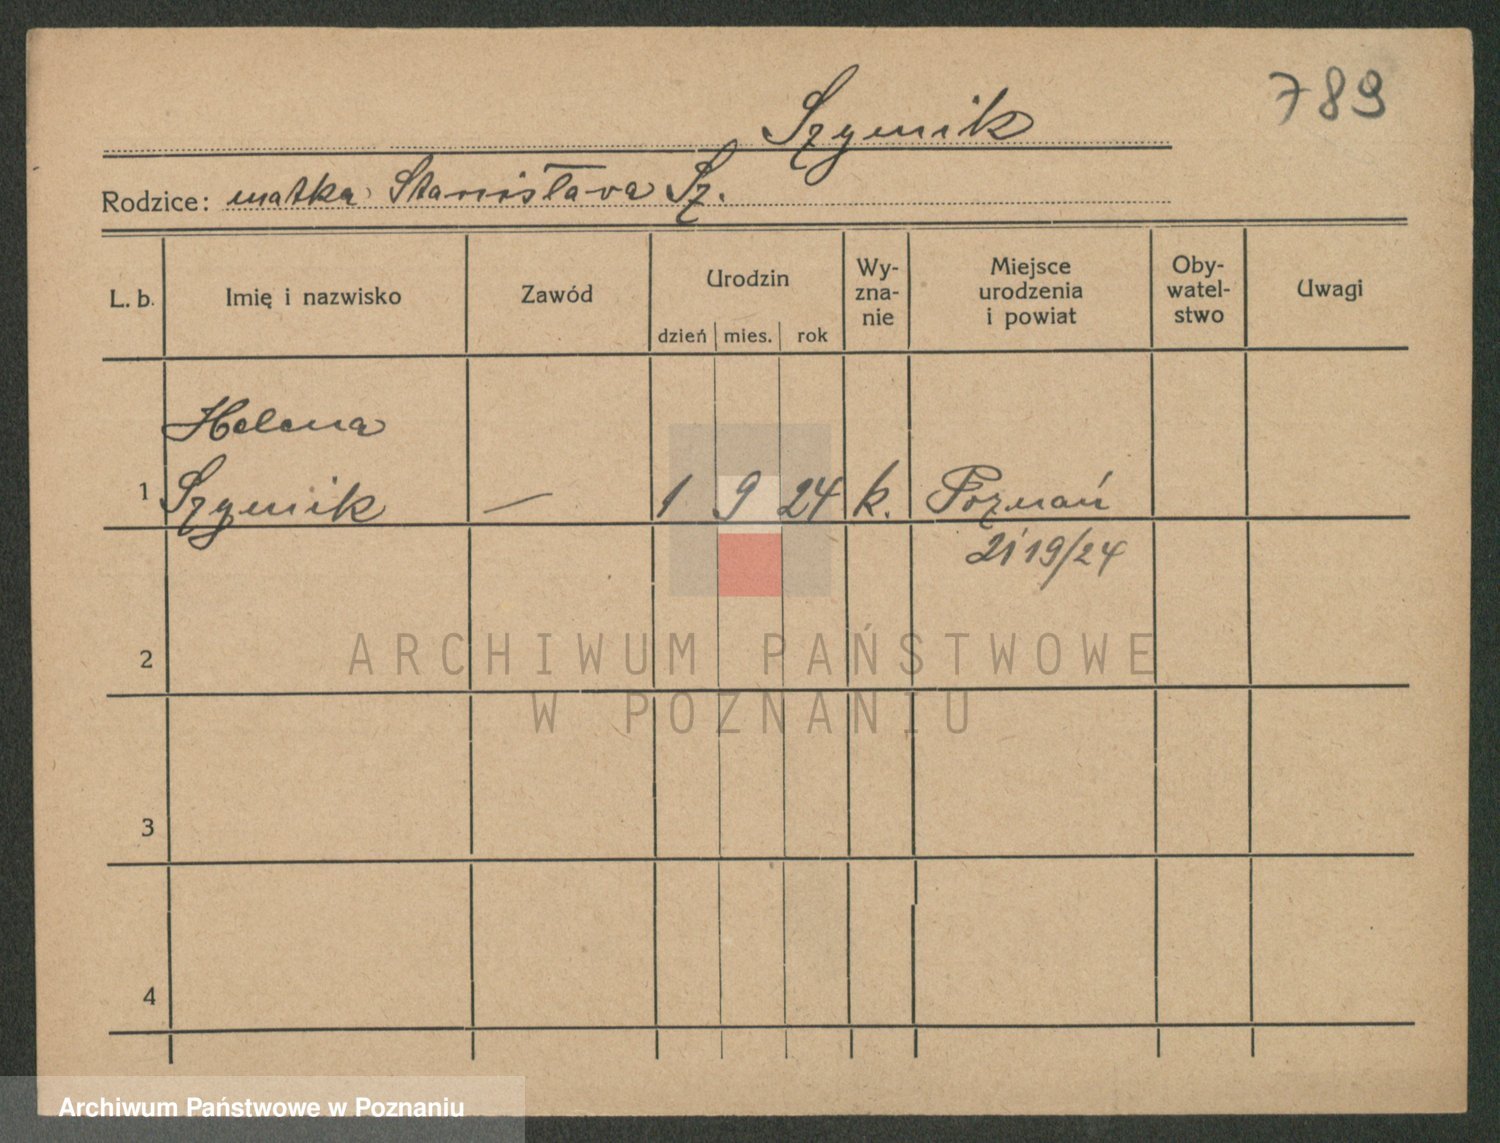 789
Szymik
Rodzice: matka Stanisława Sz.
L. b. Imię i nazwisko Zawód Urodzin Wy- zna- nie Miejsce urodzenia i powiat Oby- watel- stwo Uwagi
dzień mies. rok
Helena
1 Szymik — 1 9 24 k. Poznań
19/24
2
ARCHIWUM PAŃSTWOWE
W POZNANIU
3
4
Archiwum Państwowe w Poznaniu